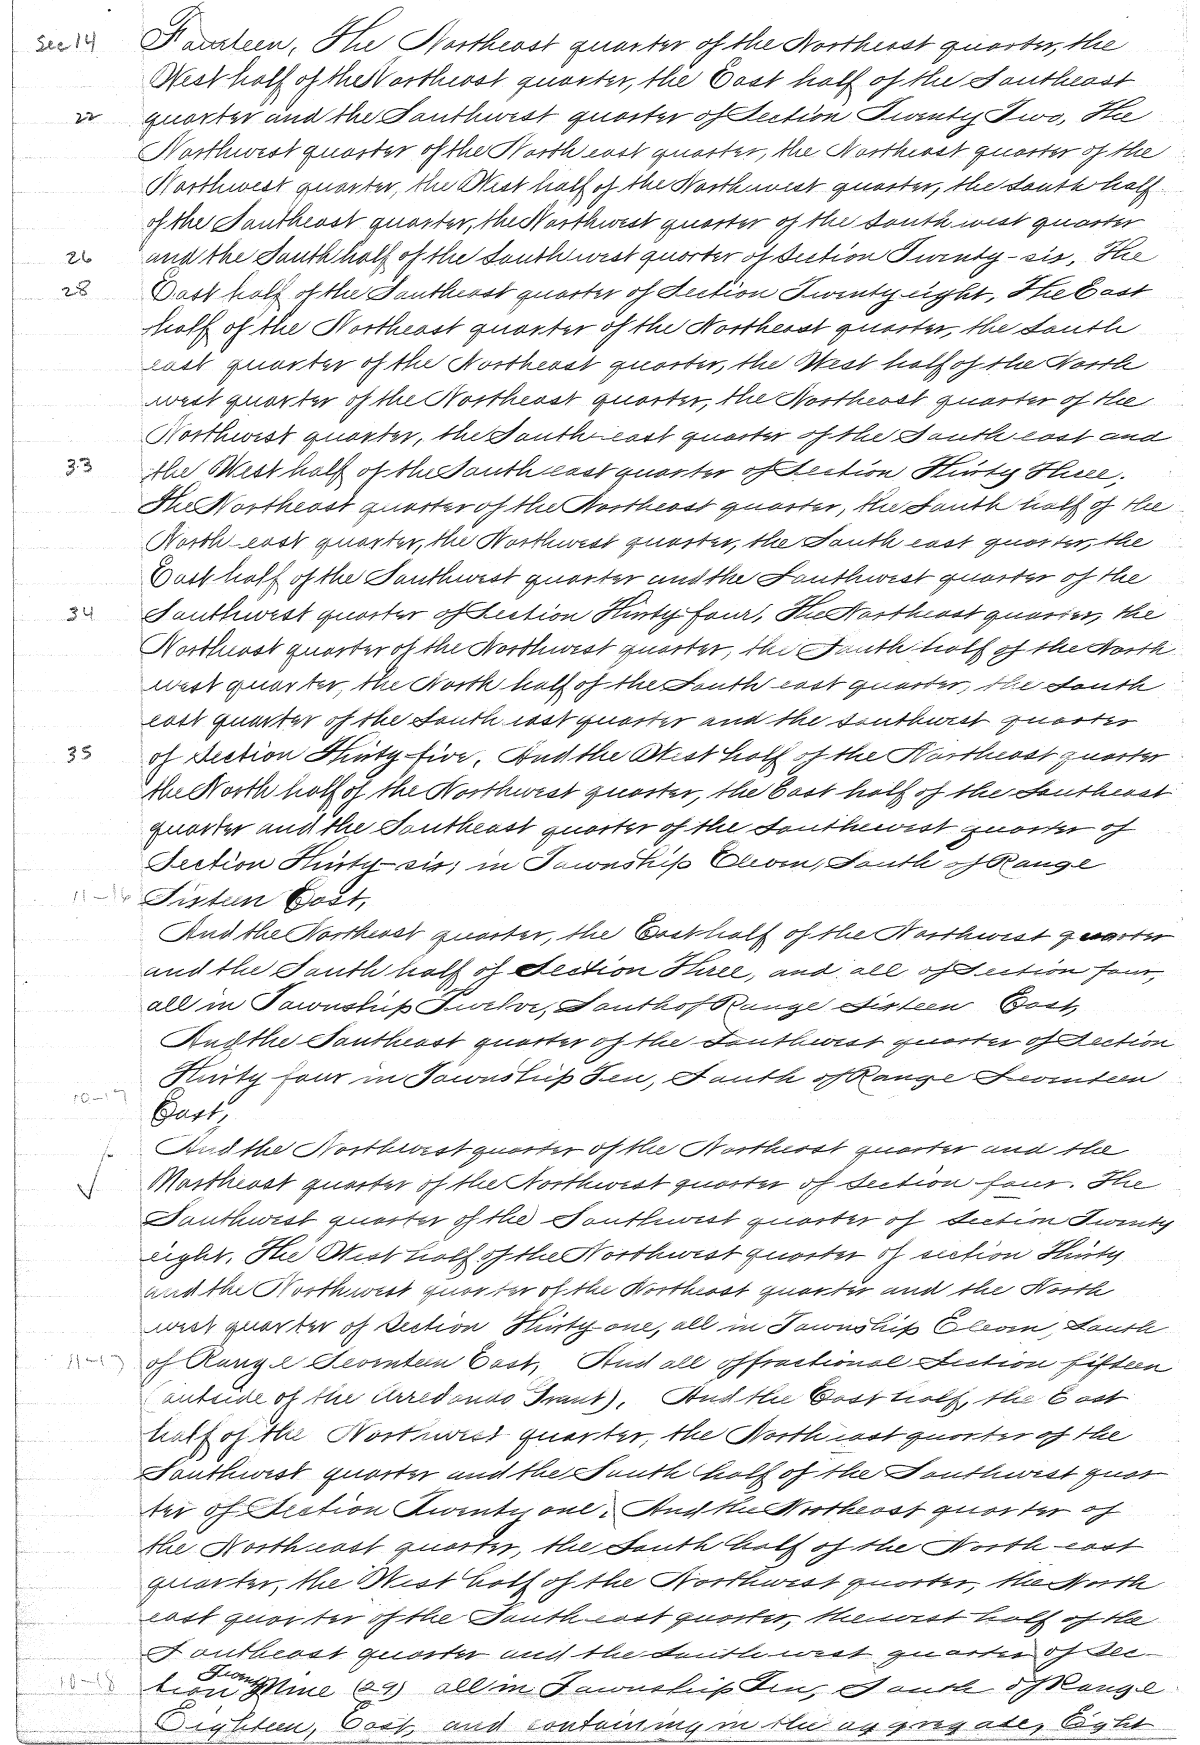 Sec 14 Fourteen, The Northeast quarter of the Northeast quarter, the
West half of the Northeast quarter, the East half of the Southeast
22 quarter and the Southwest quarter of Section Twenty Two, The
Northwest quarter of the North east quarter, the Northeast quarter of the
Northwest quarter, the West half of the Northwest quarter, the South half
of the Southeast quarter, the Northwest quarter of the South west quarter
26 and the South half of the South west quarter of Section Twenty-six, The
28 East half of the Southeast quarter of Section Twenty eight, The East
half of the Northeast quarter of the Northeast quarter, the South
east quarter of the Northeast quarter, the West half of the North
west quarter of the Northeast quarter, the Northeast quarter of the
Northwest quarter, the South-east quarter of the South east and
33 the West half of the South east quarter of Section Thirty Three;
The Northeast quarter of the Northeast quarter, the South half of the
North east quarter, the Northwest quarter, the South east quarter, the
East half of the Southwest quarter and the Southwest quarter of the
34 Southwest quarter of Section Thirty four, The Northeast quarter, the
Northeast quarter of the Northwest quarter, the South half of the North
west quarter, the North half of the South east quarter, the South
east quarter of the South east quarter and the Southwest quarter
35 of Section Thirty-five, And the West half of the Northeast quarter
the North half of the Northwest quarter, the East half of the Southeast
quarter and the Southeast quarter of the Southwest quarter of
Section Thirty-six; in Township Eleven, South of Range
11-16 Sixteen East,
And the Northeast quarter, the East half of the Northwest quarter
and the South half of Section Three, and all of Section four,
all in Township Twelve, South of Range Sixteen East,
And the Southeast quarter of the Southwest quarter of Section
Thirty four in Township Ten, South of Range Seventeen
10-17 East,
And the Northwest quarter of the Northeast quarter and the
Northeast quarter of the Northwest quarter of Section four. The
Southwest quarter of the Southwest quarter of Section Twenty
eight, The West half of the Northwest quarter of section Thirty
and the Northwest quarter of the Northeast quarter and the North
west quarter of Section Thirty-one, all in Township Eleven, South
11-17 of Range Seventeen East, And all of fractional Section fifteen
(outside of the Arredondo Grant), And the East half, the East
half of the Northwest quarter, the North east quarter of the
Southwest quarter and the South half of the Southwest quar
ter of Section Twenty one, And the Northeast quarter of
the North east quarter, the South half of the North east
quarter, the West half of the Northwest quarter, the North
east quarter of the South east quarter, the west half of the
Southeast quarter and the South west quarter of Sec-
10-18 tion Twenty Nine (29) all in Township Ten, South of Range
Eighteen, East, and containing in the aggregate, Eight